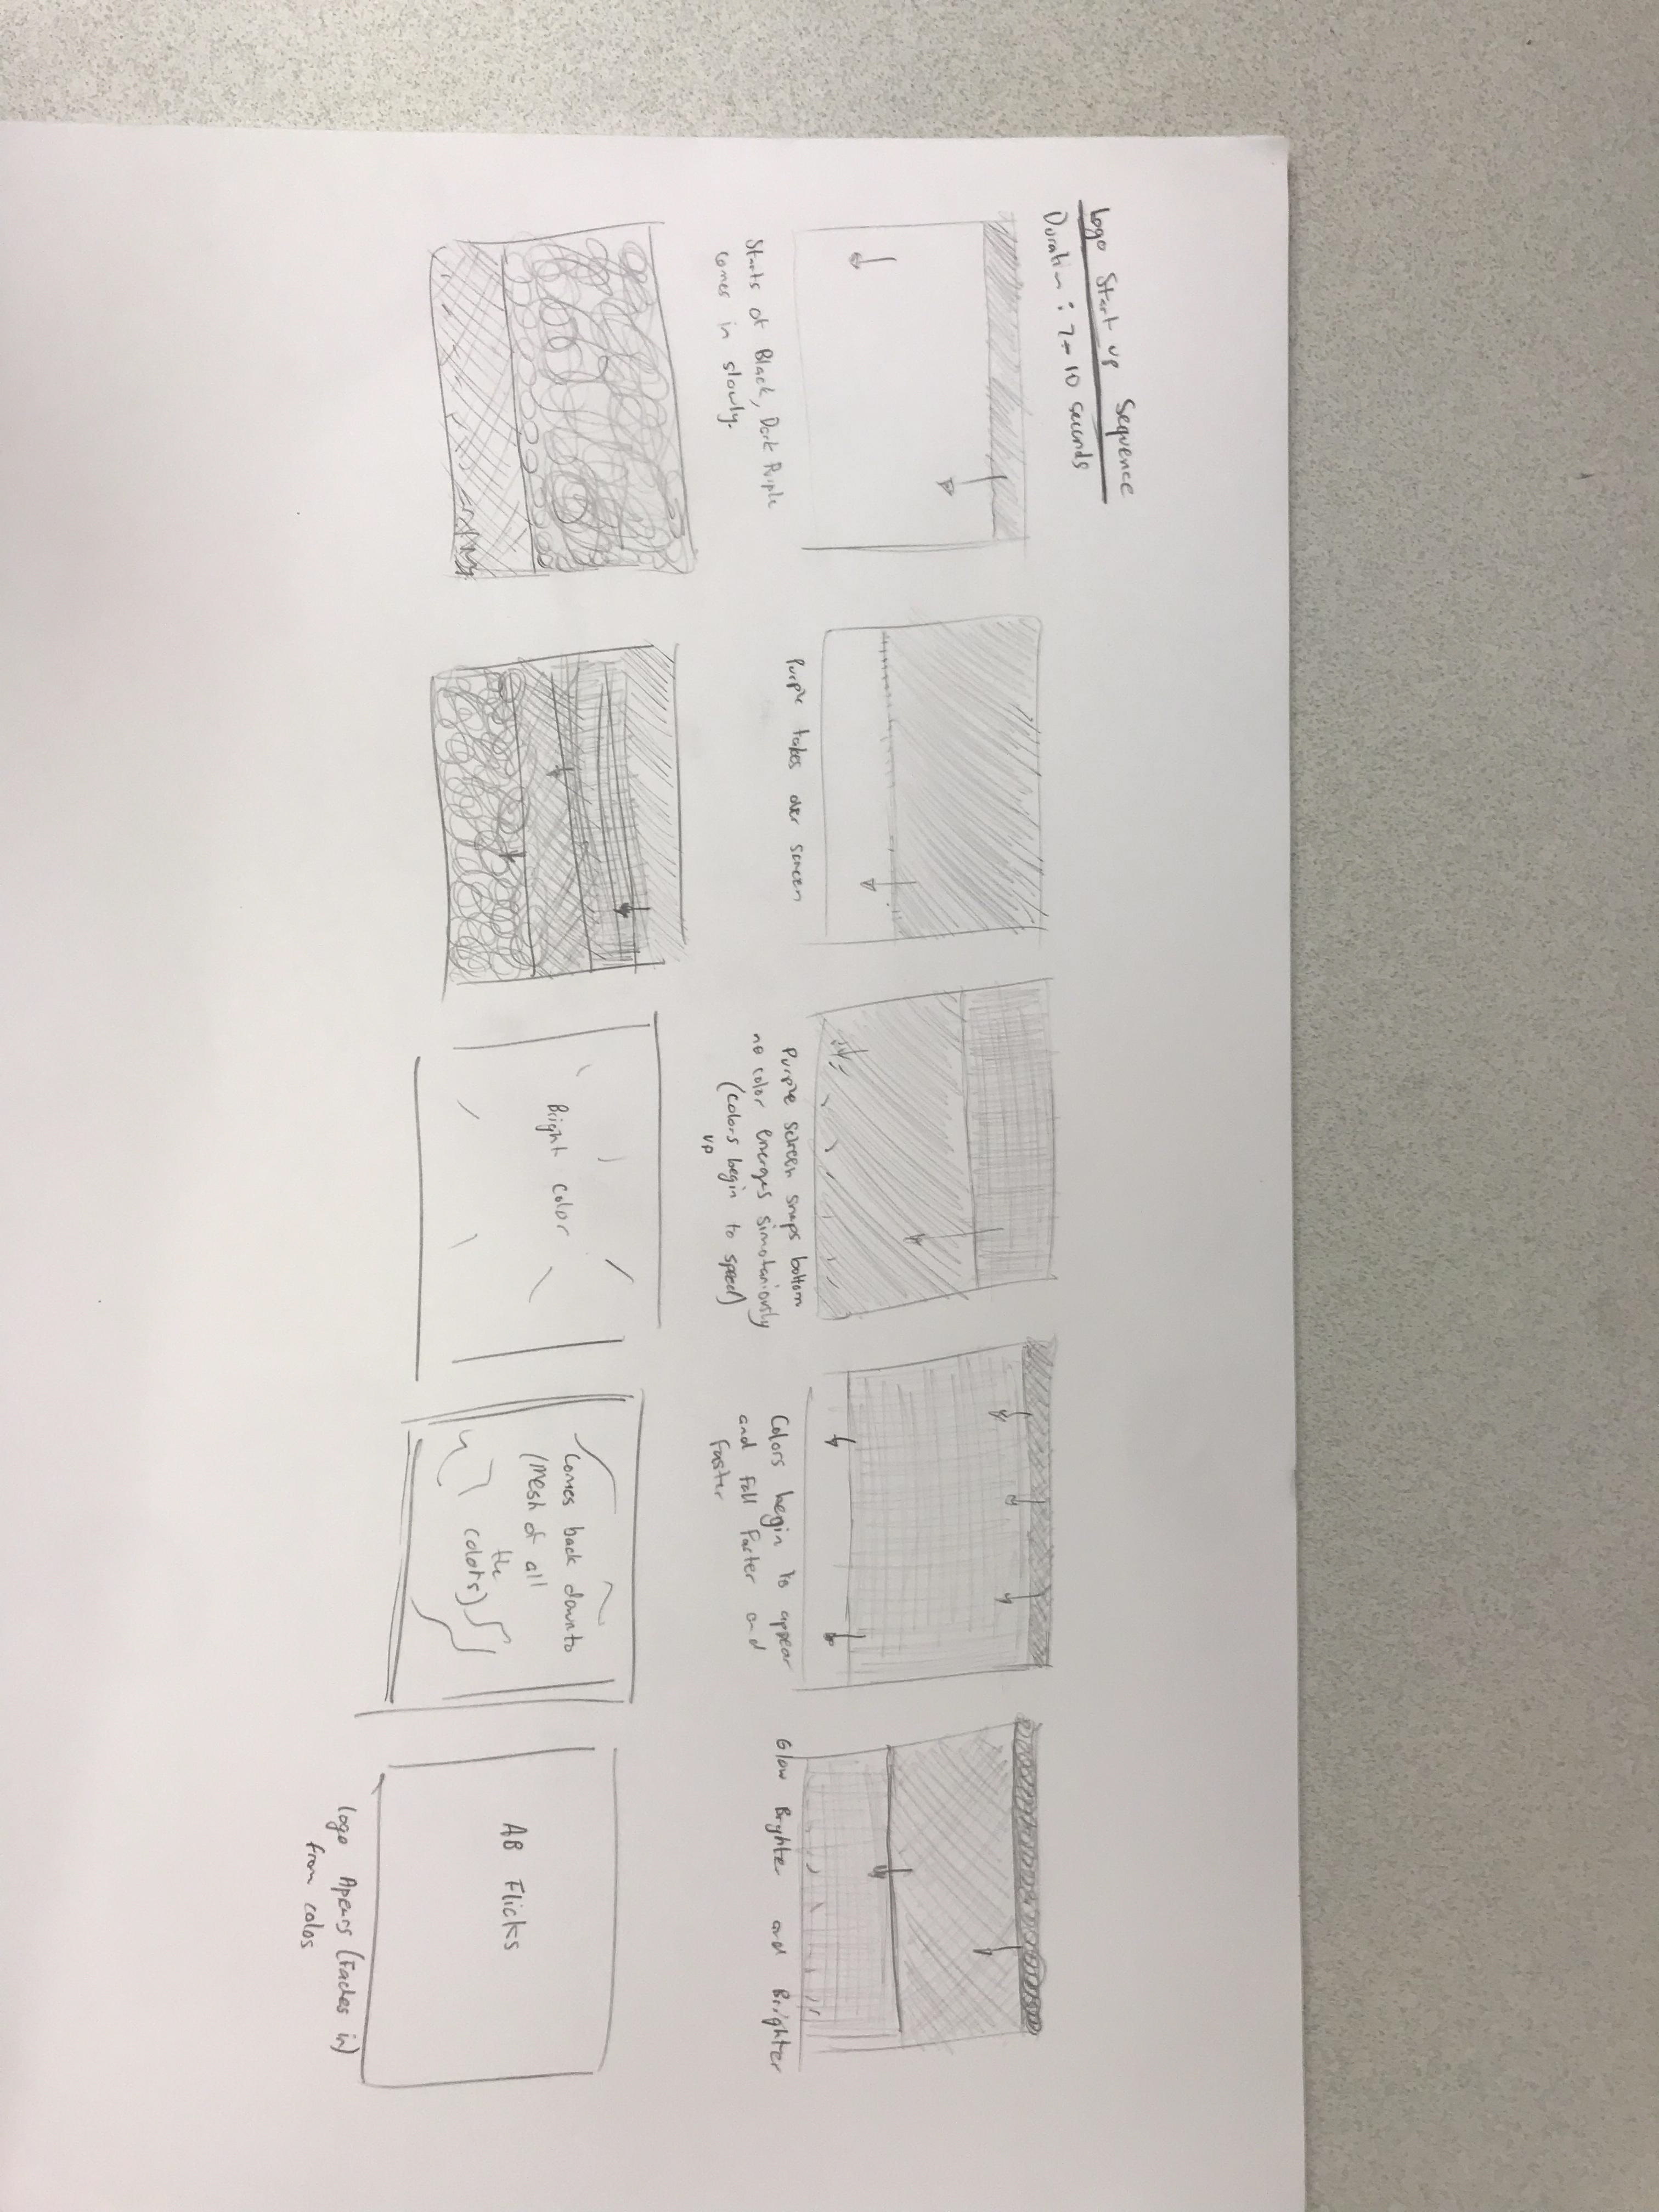 Logo Start up Sequence
Duration: 7-10 seconds
Starts of Black, Dark Purple
comes in slowly.
Purple takes over screen
Purple screen snaps bottom
no color emerges simotaniously
(colors begin to speed)
up
Colors begin to appear
and fall faster and
faster
Glow Brighter and Brighter
Bright color
Comes back down to
(mesh of all
the
colors)
AB Flicks
Logo Apears (Fades in)
from colos